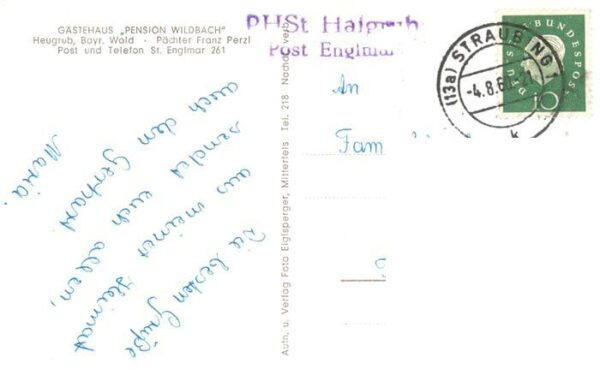 GÄSTEHAUS „PENSION WILDBACH"
Heugrub, Bayr. Wald - Pächter Franz Perzl
Post und Telefon St. Englmar 261
Die besten Grüße
aus meiner Heimat
sendet euch allen,
auch dem Gerhard
Maria.
Autn. u. Verlag Foto Eiglsperger, Mitterfels Tel. 218 Nachdr. verb.
Post Englmar
(13a) STRAUBING 1
-4.8.6
k
DEUTSCHE BUNDESPOST
10
An
Fam